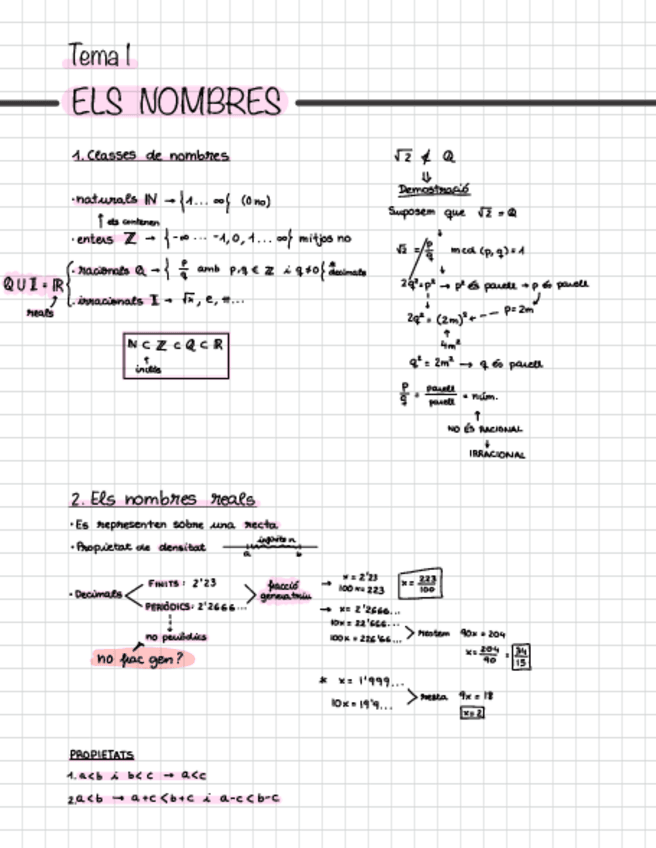 Tema 1
ELS NOMBRES
1. Classes de nombres
· naturals ℕ → {1... ∞} (0 no)
↑ els contenen
· enters ℤ → {-∞ ... -1, 0, 1 ... ∞} mitjos no
· racionals ℚ → { p/q amb p, q ∈ ℤ i q ≠ 0} decimals
ℚ ∪ 𝕀 = ℝ
reals
· irracionals 𝕀 → √n, e, π...
ℕ ⊂ ℤ ⊂ ℚ ⊂ ℝ
↑
inclòs
√2 ∉ ℚ
⇓
Demostració
Suposem que √2 = ℚ
↓
√2 = p/q mcd (p, q) = 1
2q² = p² → p² és parell → p és parell
2q² = (2m)² ← p = 2m
↑
4m²
q² = 2m² → q és parell
p/q = parell/parell = núm.
↑
NO ÉS RACIONAL
↓
IRRACIONAL
2. Els nombres reals
· Es representen sobre una recta
· Propietat de densitat
infinits n
a b
· Decimals
FINITS: 2'23
PERIÒDICS: 2'2666...
no periòdics
no frac gen?
fracció generatriu
→ x = 2'23
100x = 223
x = 223/100
→ x = 2'2666...
10x = 22'666...
100x = 226'66...
restem 90x = 204
x = 204/90 = 34/15
* x = 1'999...
10x = 19'9...
resta 9x = 18
x = 2
PROPIETATS
1. a<b i b<c → a<c
2. a<b → a+c<b+c i a-c<b-c